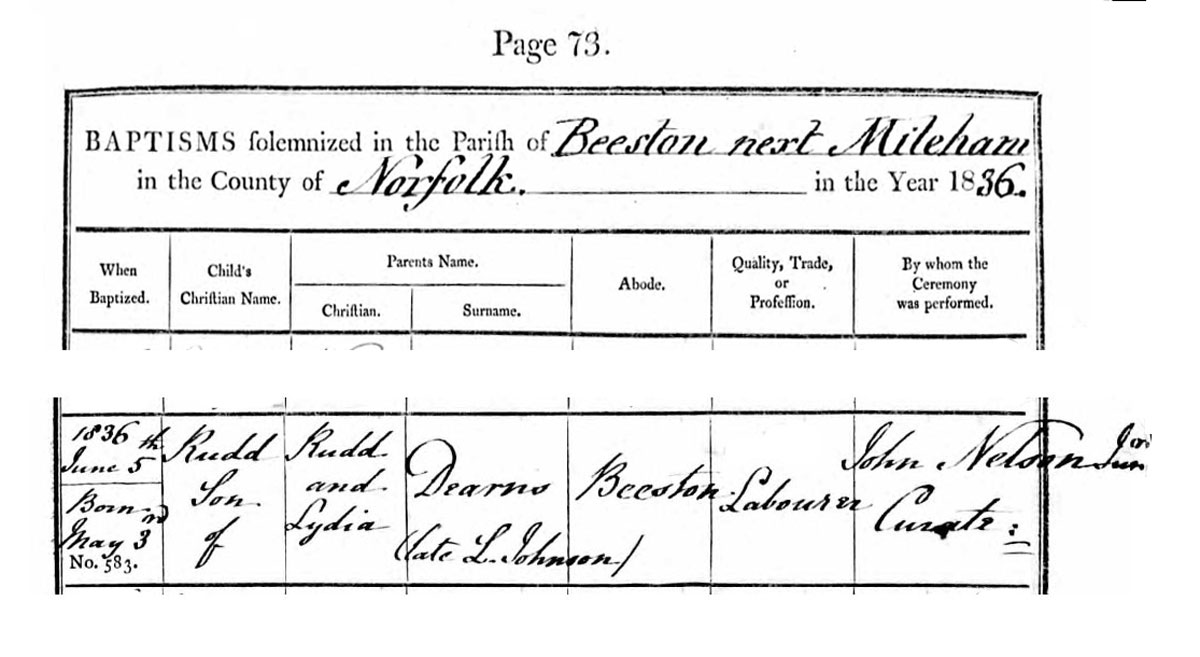 Page 73.
BAPTISMS ſolemnized in the Pariſh of Beeston next Mileham
in the County of Norfolk. in the Year 1836.
When
Baptized.
Child's
Chriſtian Name.
Parents Name.
Chriſtian.
Surname.
Abode.
Quality, Trade,
or
Profeſſion.
By whom the
Ceremony
was performed.
1836
June 5th
Born
May 3rd
No. 583.
Rudd
Son
of
Rudd
and
Lydia
Dearns
(late L. Johnson)
Beeston
Labourer
John Nelson Junr
Curate